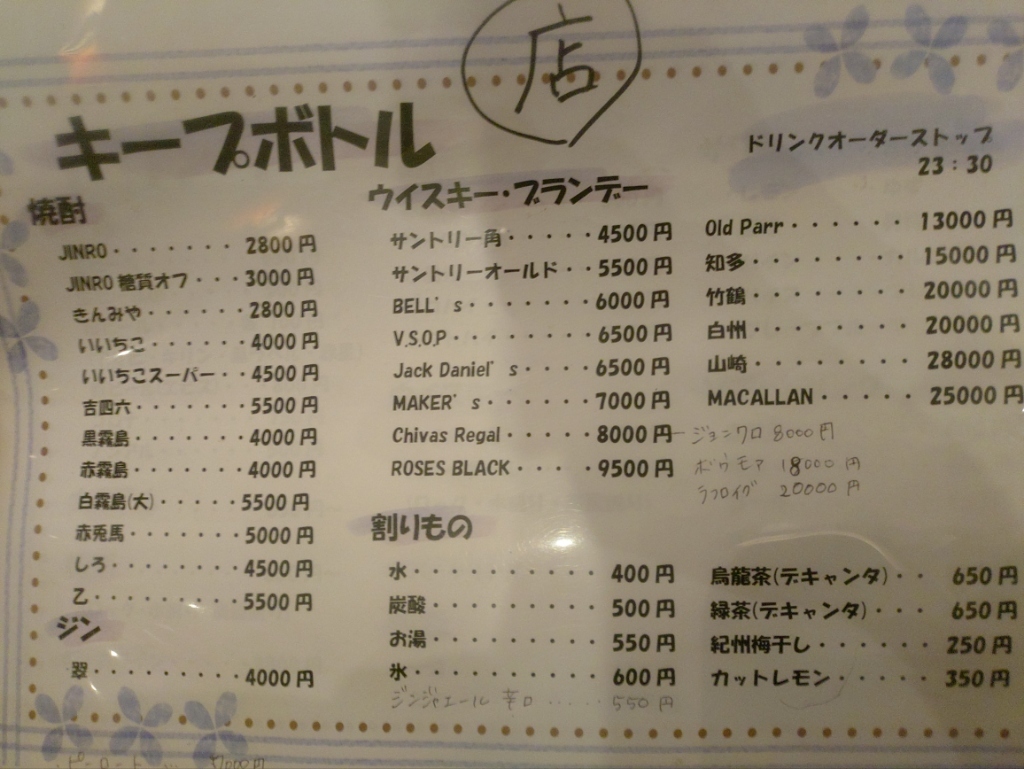 店
キープボトル
ドリンクオーダーストップ
23：30
焼酎
JINRO・・・・・・・2800円
JINRO 糖質オフ・・・3000円
きんみや・・・・・・2800円
いいちこ・・・・・・4000円
いいちこスーパー・・4500円
吉四六・・・・・・・5500円
黒霧島・・・・・・・4000円
赤霧島・・・・・・・4000円
白霧島(大)・・・・・5500円
赤兎馬・・・・・・・5000円
しろ・・・・・・・・4500円
乙・・・・・・・・・5500円
ジン
翠・・・・・・・・・4000円
ウイスキー・ブランデー
サントリー角・・・・・4500円
サントリーオールド・・5500円
BELL’s・・・・・・・6000円
V.S.O.P・・・・・・・・6500円
Jack Daniel’s・・・・6500円
MAKER’s・・・・・・7000円
Chivas Regal・・・・・8000円
ROSES BLACK・・・・・9500円
Old Parr・・・・・・13000円
知多・・・・・・・・15000円
竹鶴・・・・・・・・20000円
白州・・・・・・・・20000円
山崎・・・・・・・・28000円
MACALLAN・・・・・25000円
ジョニクロ 8000円
ボウモア 18000円
ラフロイグ 20000円
割りもの
水・・・・・・・・・・400円
炭酸・・・・・・・・・500円
お湯・・・・・・・・・550円
氷・・・・・・・・・・600円
ジンジャエール 辛口・・・・・550円
烏龍茶(デキャンタ)・・650円
緑茶(デキャンタ)・・・650円
紀州梅干し・・・・・・250円
カットレモン・・・・・350円